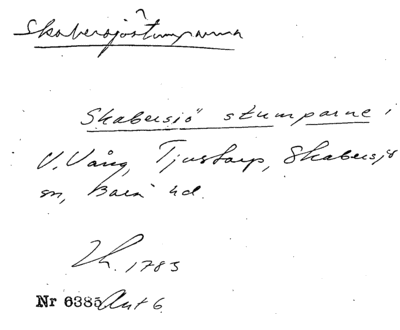 Skabersjöstumparna
Skabersjö stumparne i
V. Vång, Tjustorp, Skabersjö
sn, Bara hd.
Lh. 1783
Nr 6385 Ant 6